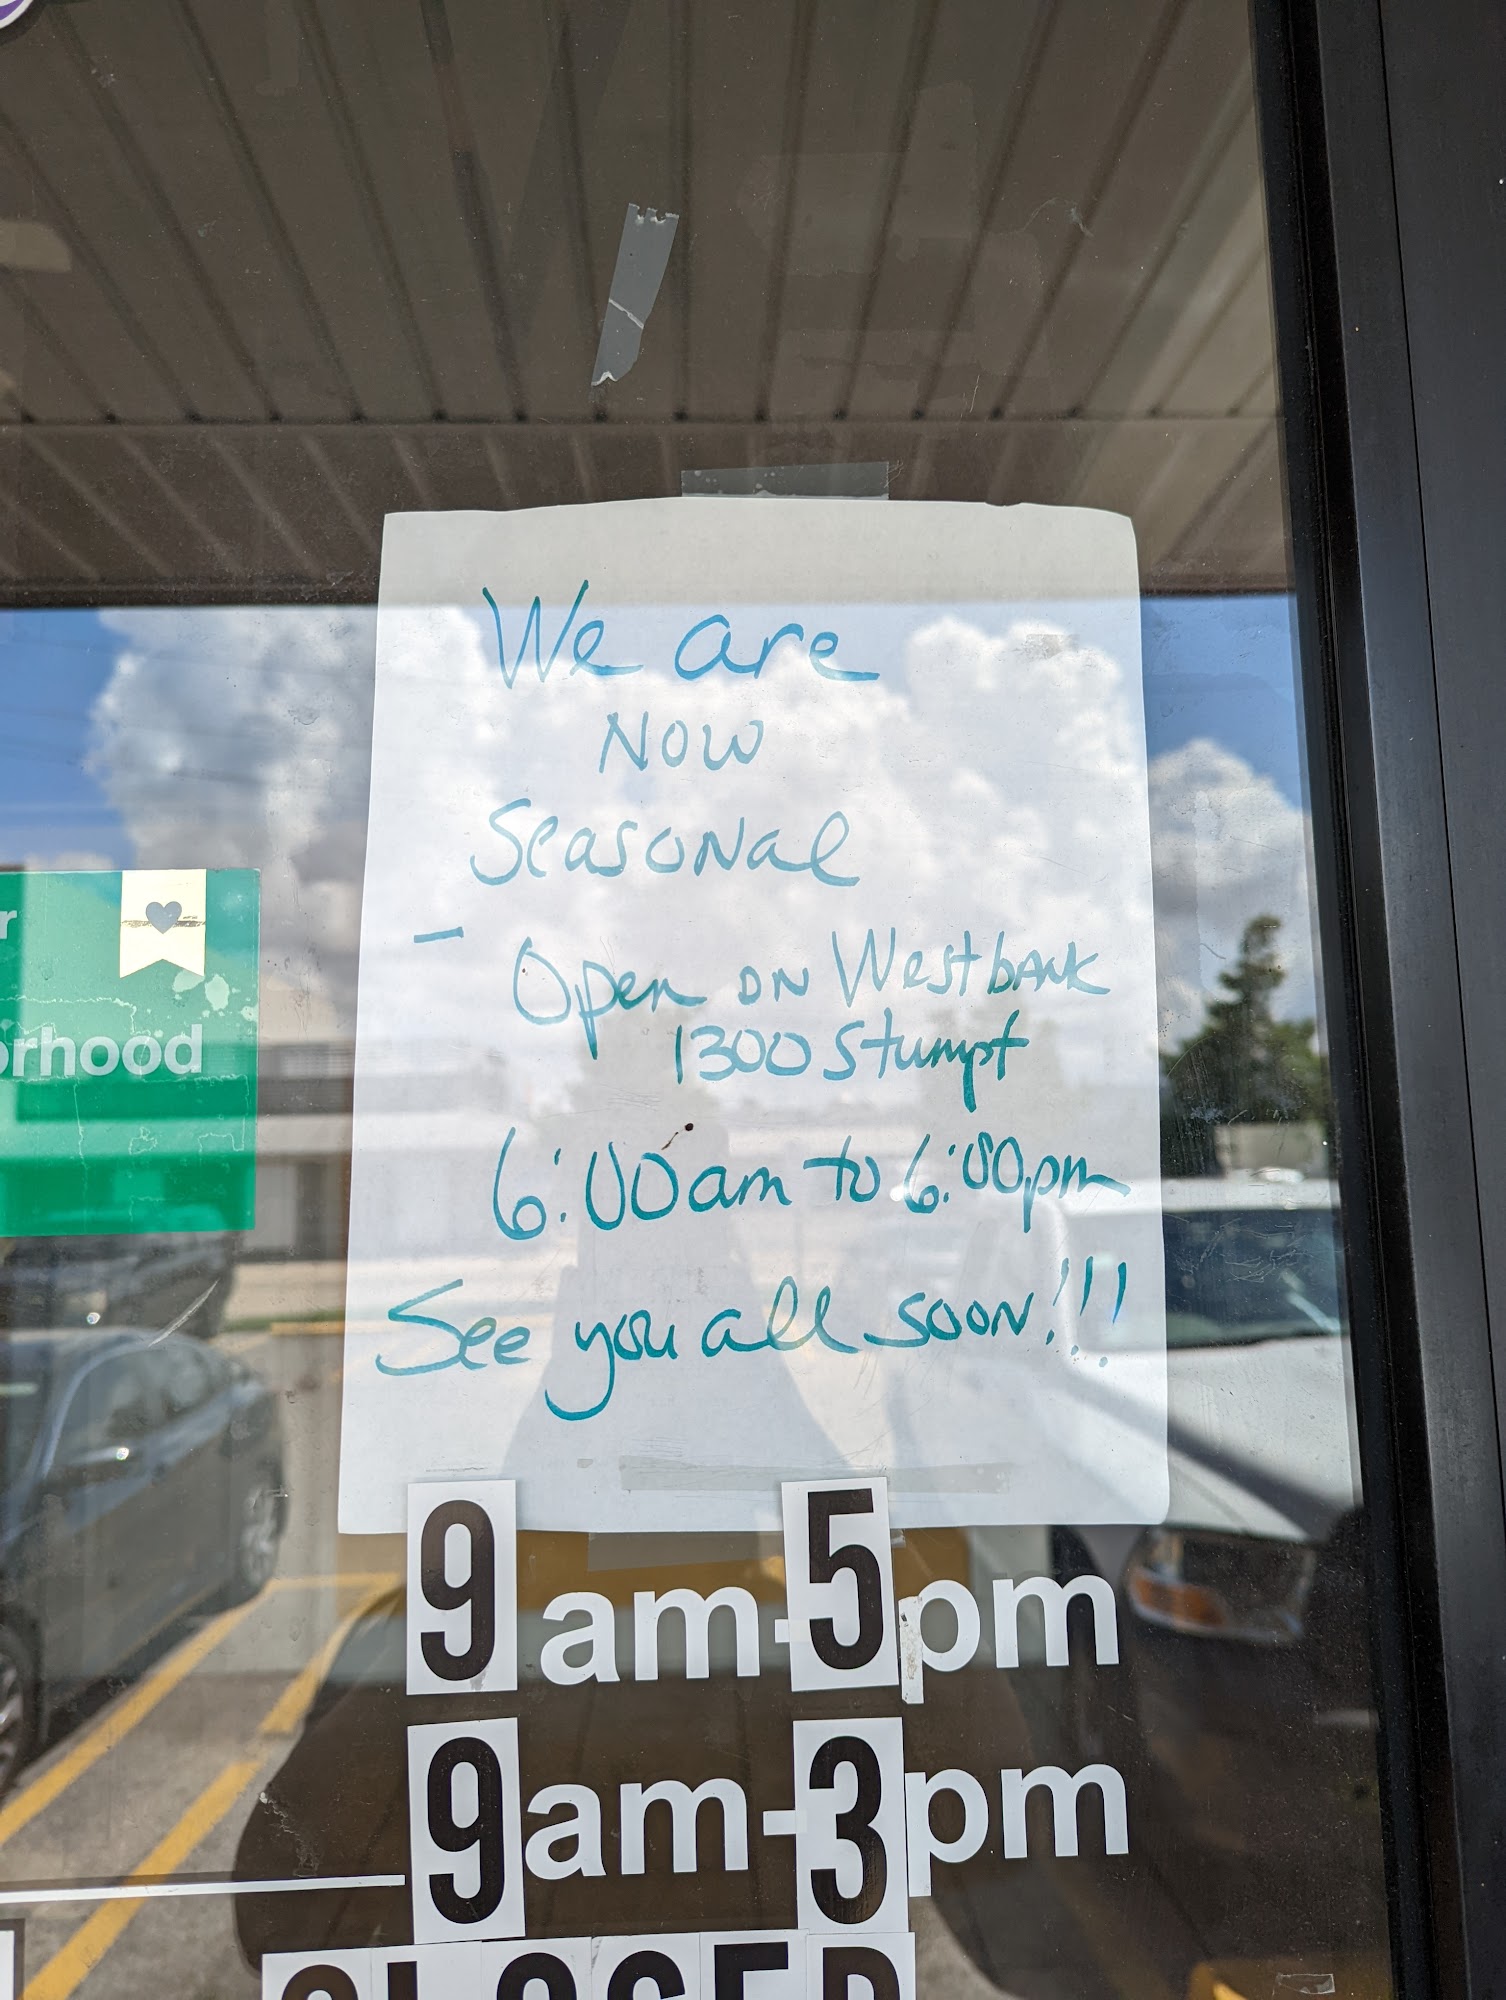 We are
NOW
Seasonal
- Open ON Westbank
1300 Stumpf
6:00am to 6:00pm
See you all soon!!!
r
orhood
9am-5pm
9am-3pm
CLOSED